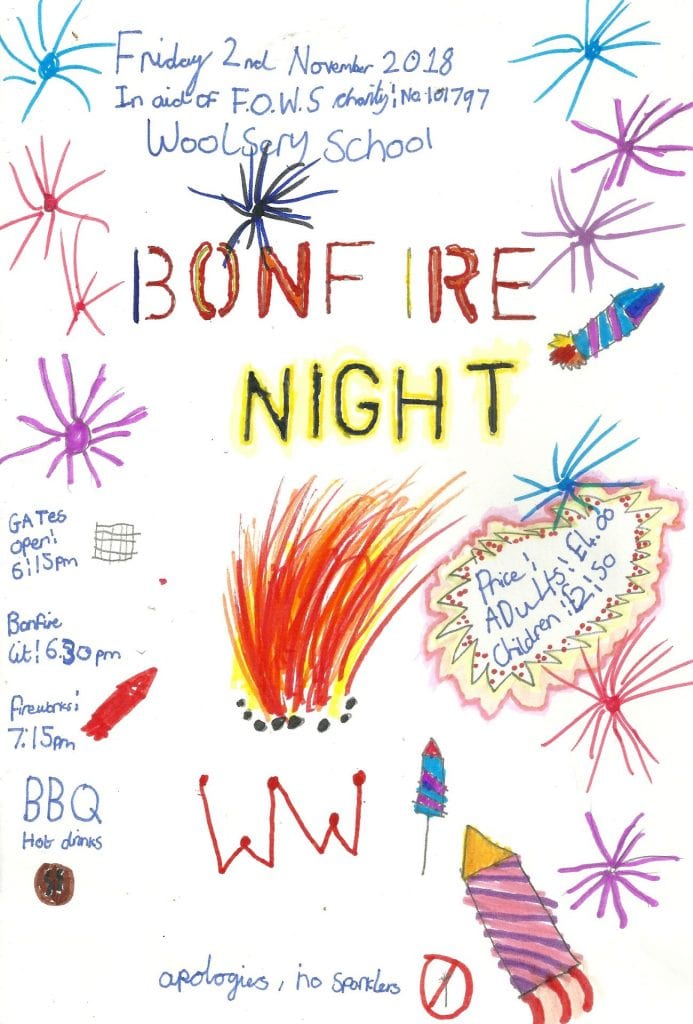 Friday 2nd November 2018
In aid of F.O.W.S charity! No. 101797
WOOLSERY SCHOOL
BONFIRE
NIGHT
GATes
open!
6:15pm
Bonfire
lit! 6.30pm
fireworks!
7.15pm
BBQ
Hot drinks
Price!
ADults! £4.00
Children! £2.50
apologies, no sparklers